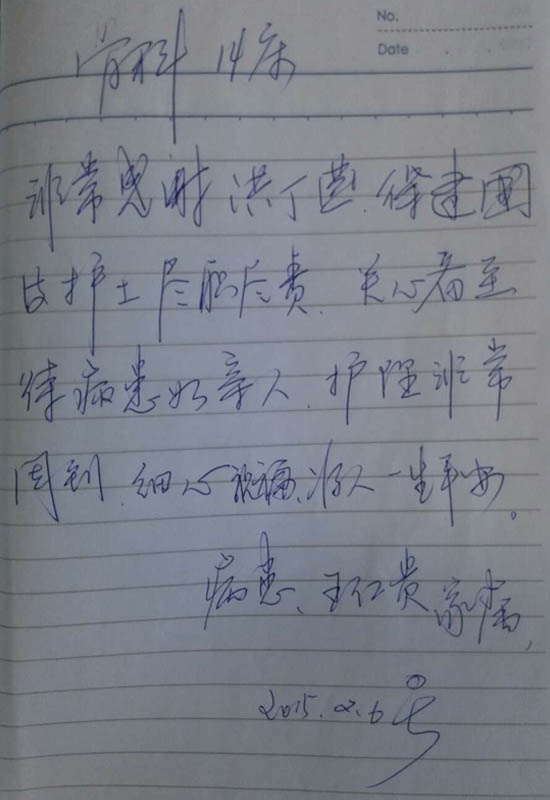 No.
Date
骨科 14床
非常感谢洪丁茜、保建国
护士尽职尽责、关心备至
待病患如亲人、护理非常
周到、细心 好人一生平安。
病患、王仁贵家属,
2015.2.6号